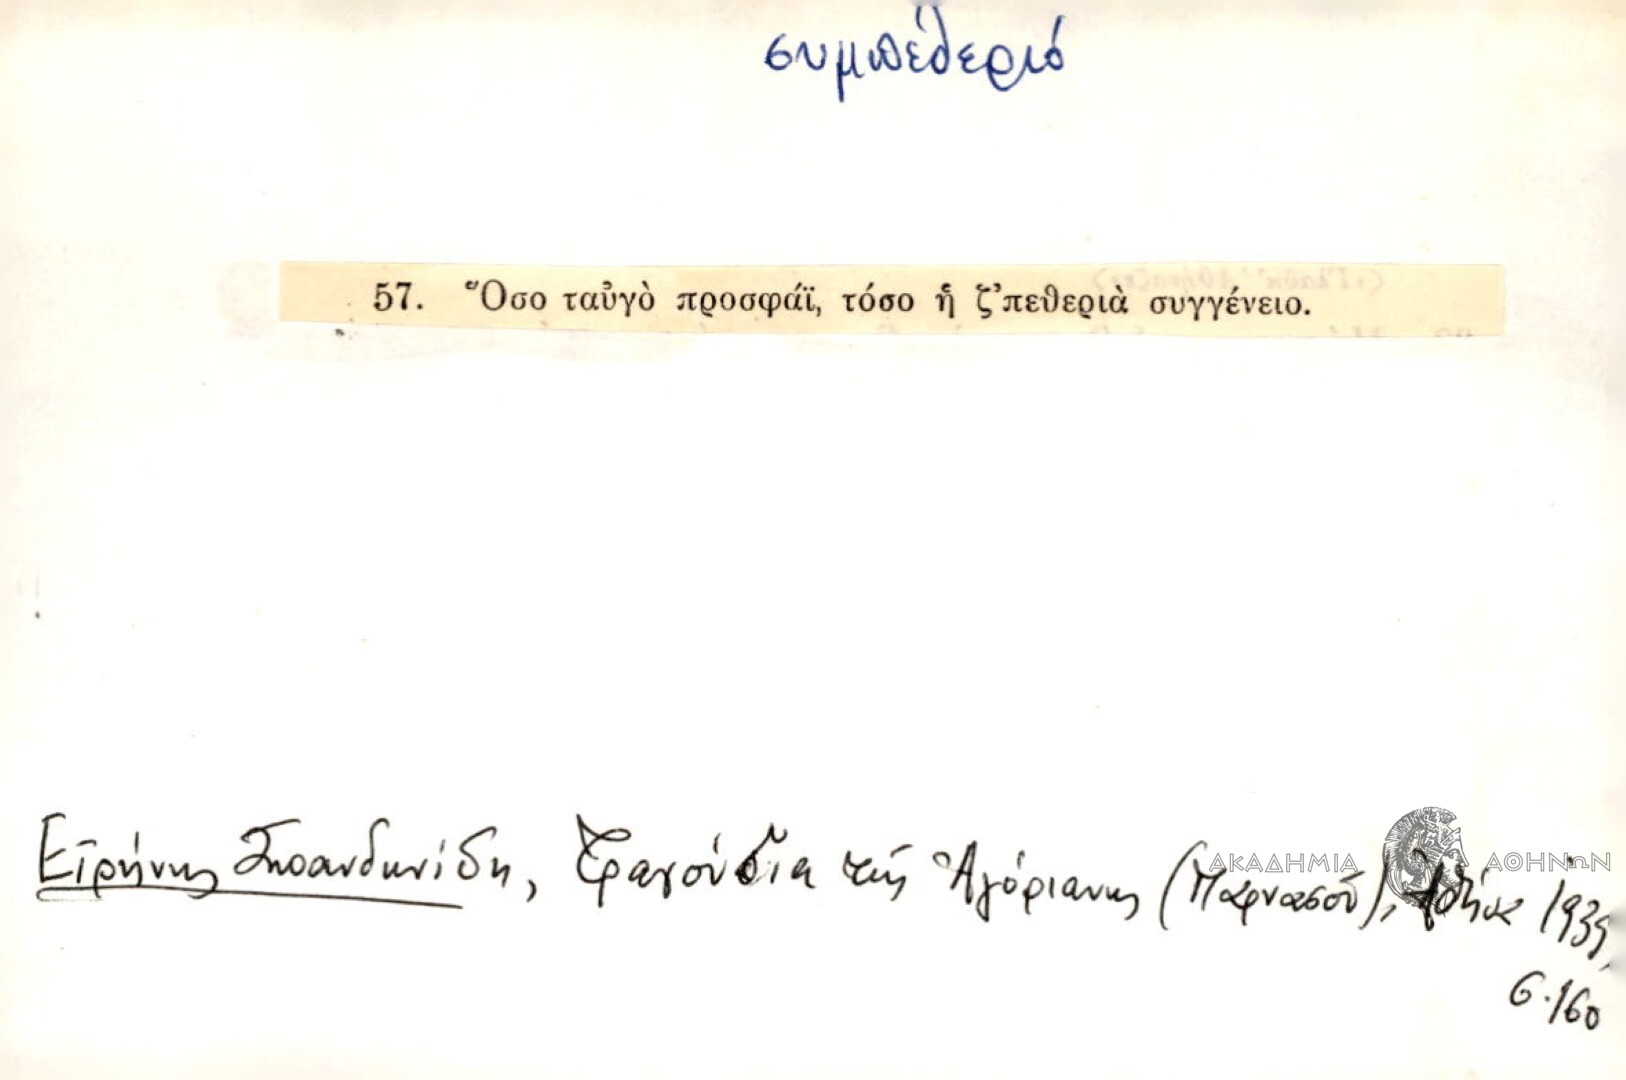 συμπέθεριό
57. Ὅσο ταὐγὸ προσφάϊ, τόσο ἡ ζ’πεθεριὰ συγγένειο.
Εἰρήνης Σπανδωνίδη, Τραγούδια τῆς Ἀγόριανης (Παρνασοῦ), Ἀθήνα 1939,
σ. 160
ΑΚΑΔΗΜΙΑ ΑΘΗΝΩΝ